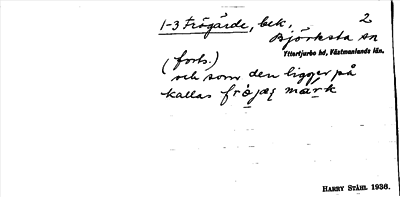 1-3 Frögärde, bek, 2
Björksta sn
Yttertjurbo hd, Västmanlands län.
(forts.)
och som den ligger på
kallas
Harry Ståhl 1936.